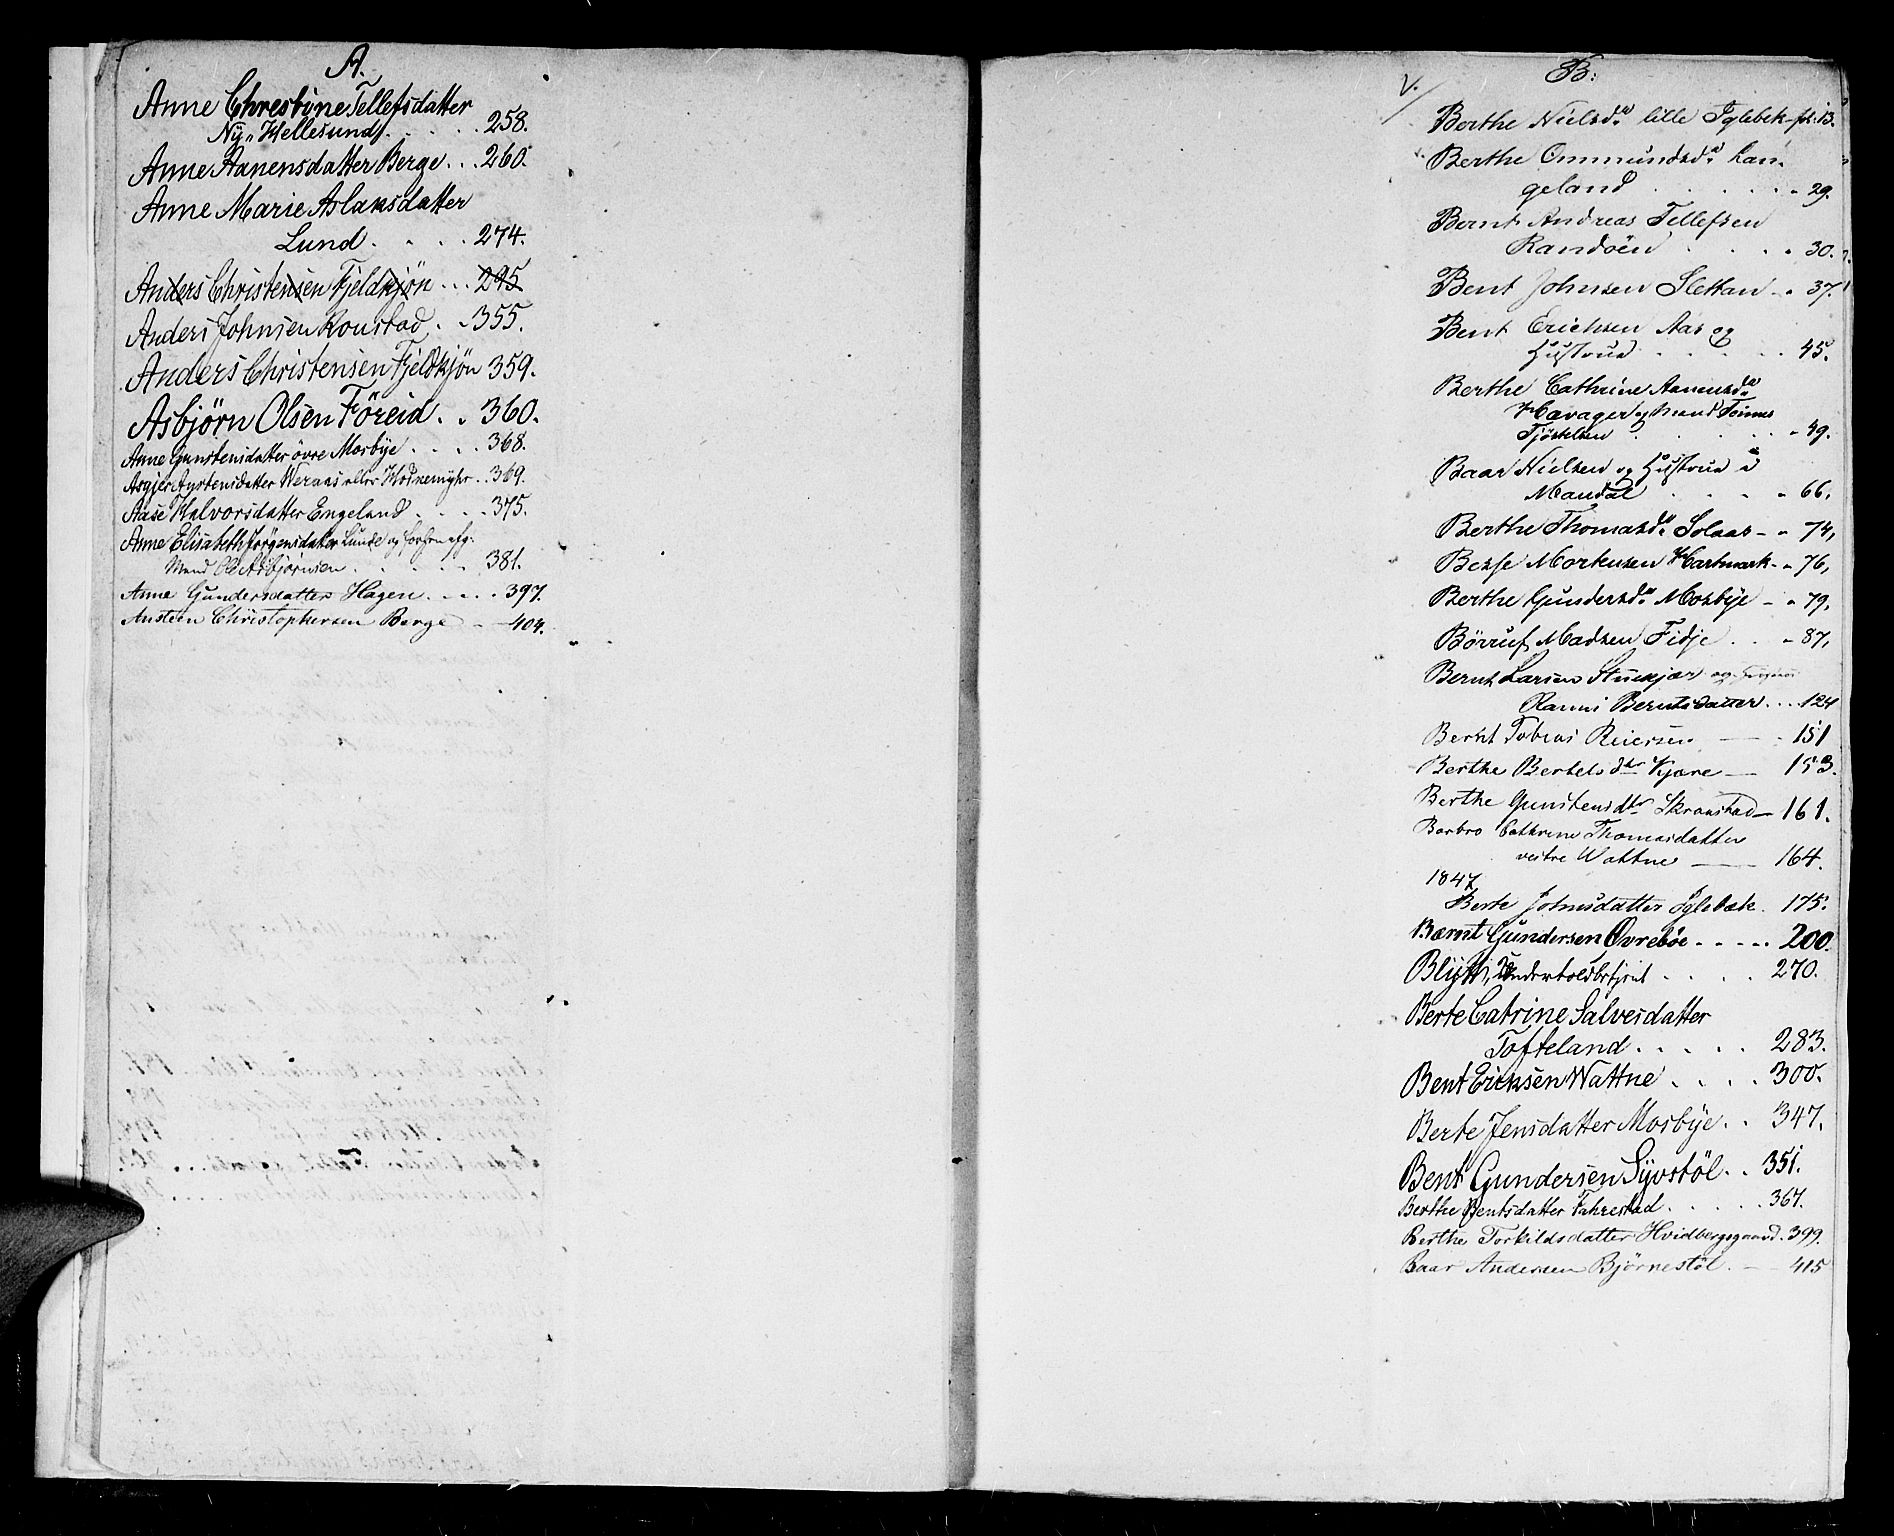 A.
Anne Chrestine Tellefsdatter
Ny Hellesund . . . . 258.
Anne Aanensdatter Berge . . . 260.
Anne Marie Aslaksdatter
Lund . . . . 274.
Anders Christensen Fjeldkjön . . . 295
Anders Johnsen Ronstad . . 355.
Anders Christensen Fjeldkjön 359.
Asbjörn Olsen Föreid . . 360.
Anne Gunstensdatter övre Mosbye . . . . 368.
Asgjer Aystensdatter Weraas eller Hodnemyhr . . 369.
Aase Halvorsdatter Engeland . . . . 375.
Anne Elisabeth Jörgensdatter Lunde og forhen afg.
Mand Ole Asbjörnsen . . . . . 381.
Anne Gundersdatter Hagen . . . . . 397.
Ansteen Christophersen Berge - 404.
V.
B:
Berthe Nielsd: lille Iglebek - fol. 13.
Berthe Ommundsd: Lan-
geland . . . . . . 29.
Bernt Andreas Tellefsen
Randöen . . . . . 30.
Bent Johnsen Slettan - . 37.
Bent Erichsen Aas og
Hustrue . . . . . 45.
Berthe Cathrine Aanensd:
Havager og Mand Tönnes
Tjöstelsen . . . . . 49.
Baar Nielsen og Hustrue i
Mandal . . . . 66.
Berthe Thomasd: Solaas - . 74,
Mortensen Hartmark - . 76,
Berthe Gundersd: Mosbye - . 79,
Börruf Madsen Fidje . . . 87,
Bernt Larsen Stuekjær og
Ranni Berntsdatter . . . 124
Bernt Tobias Reiersen — . 151
Berthe Bertelsdtr Kjære — 153.
Berthe Gunstensdtr Skraastad — 161.
Barbro Cathrine Thomasdatter
vestre Wattne — 164.
1847
Berte Johnsdatter Iglebæk . 175.
Bærnt Gundersen Øvreböe . . . . . 200.
270.
Berte Catrine Salvesdatter
Tofteland . . . . . 283.
Bent Ericksen Wattne . . . . 300.
Berte Jensdatter Mosbye . . 347.
Bent Gundersen Syvstöl . . 351.
Berthe Bentsdatter Fahrestad . . . . . . 367.
Berthe Torkildsdatter Hvidbergsgaard . 399.
Baar Andersen Bjørnestöl . — 415